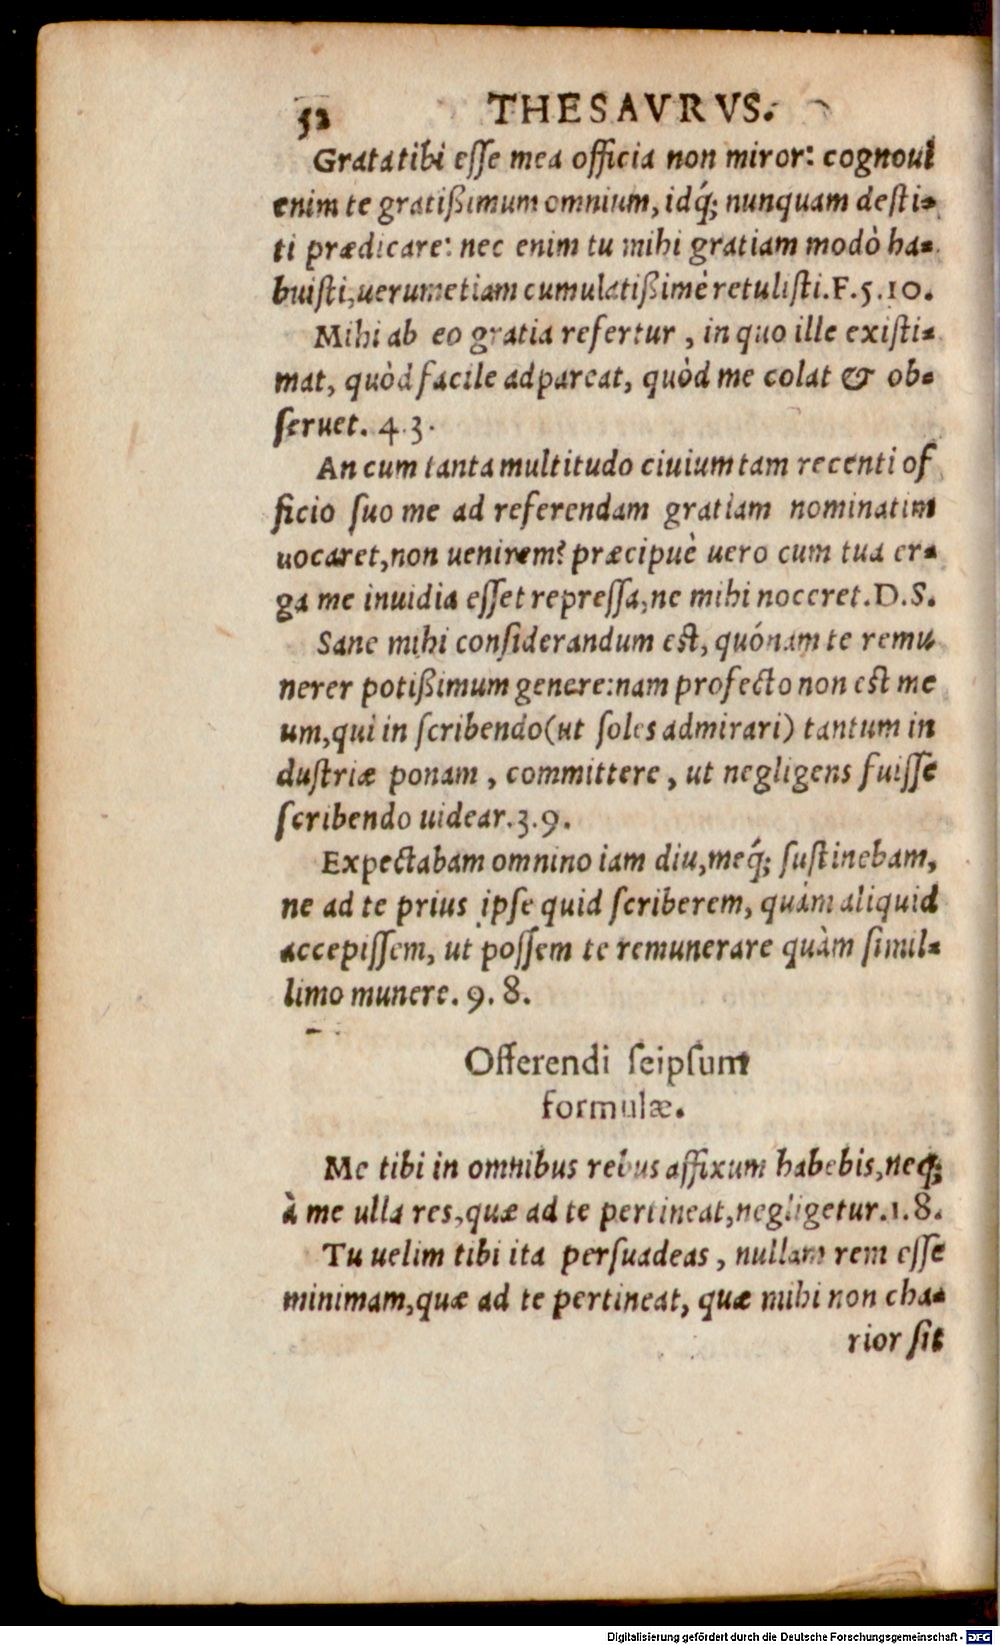 52 THESAVRVS.
Grata tibi esse mea officia non miror: cognoui
enim te gratißimum omnium, idq́; nunquam desti-
ti prædicare: nec enim tu mihi gratiam modò ha-
buisti, uerumetiam cumulatißimè retulisti. F. 5. 10.
Mihi ab eo gratia refertur, in quo ille existi-
mat, quòd facile adpareat, quòd me colat & ob-
seruet. 4. 3.
An cum tanta multitudo ciuium tam recenti of
ficio suo me ad referendam gratiam nominatim
uocaret, non uenirem? præcipuè uero cum tua er-
ga me inuidia esset repressa, ne mihi noceret. D. S.
Sane mihi considerandum est, quónam te remu-
nerer potißimum genere: nam profecto non est me
um, qui in scribendo (ut soles admirari) tantum in
dustriæ ponam, committere, ut negligens fuisse
scribendo uidear. 3. 9.
Expectabam omnino iam diu, meq́; sustinebam,
ne ad te prius ipse quid scriberem, quàm aliquid
accepissem, ut possem te remunerare quàm simil-
limo munere. 9. 8.
Offerendi seipsum
formulæ.
Me tibi in omnibus rebus affixum habebis, neq;
à me ulla res, quæ ad te pertineat, negligetur. 1. 8.
Tu uelim tibi ita persuadeas, nullam rem esse
minimam, quæ ad te pertineat, quæ mihi non cha-
rior sit
Digitalisierung gefördert durch die Deutsche Forschungsgemeinschaft - DFG